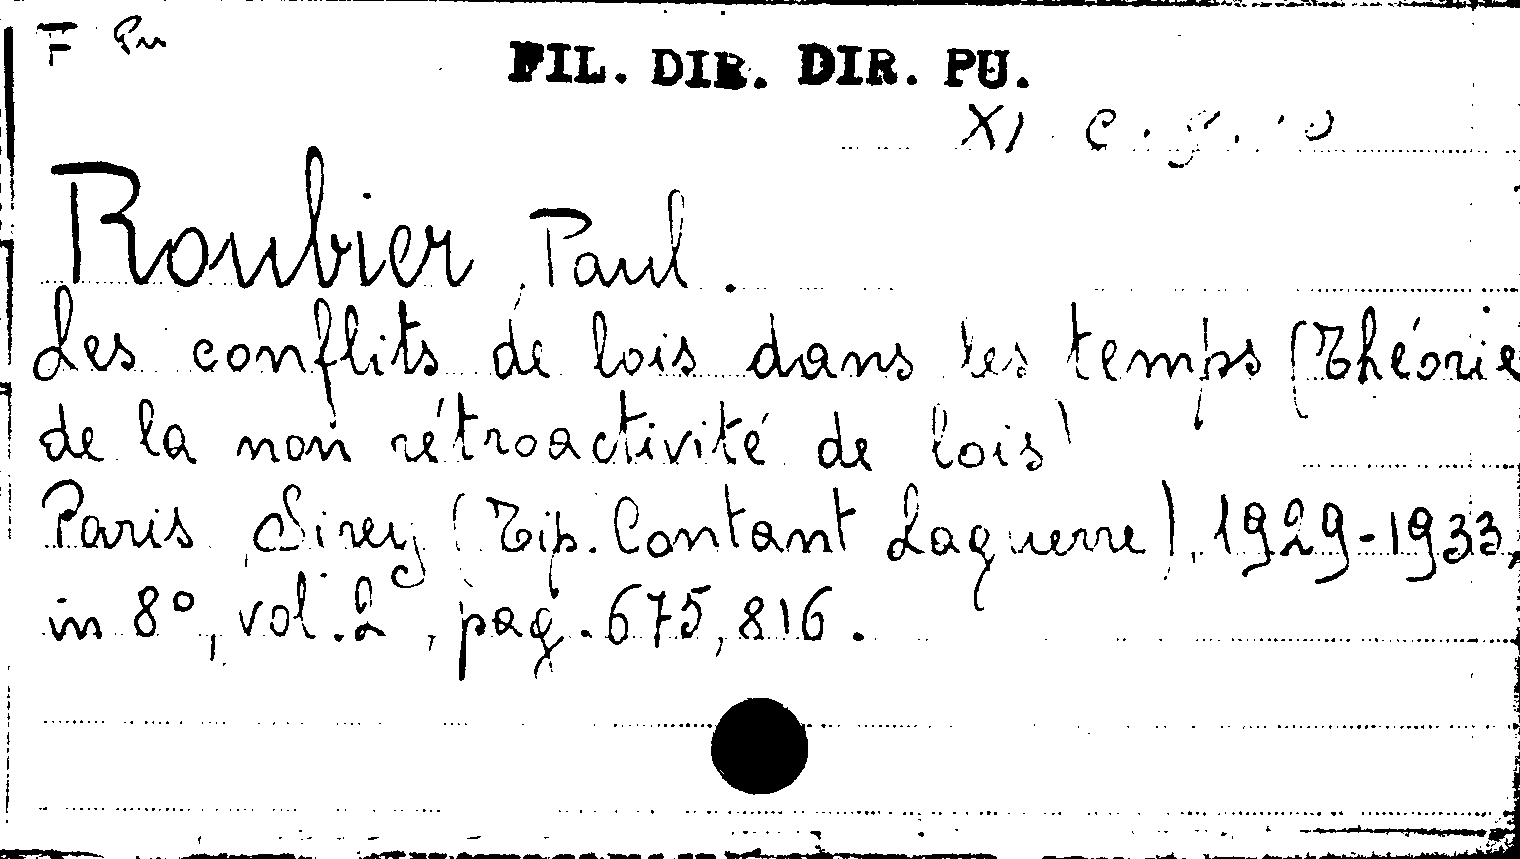 F Pu
FIL. DIR. DIR. PU.
XI C. g.
Roubier, Paul.
Les conflits de lois dans les temps (Théorie
de la non rétroactivité de lois)
Paris, Sirey (Tip. Contant Laguerre), 1929-1933,
in 8°, vol. 2, pag. 675, 816.